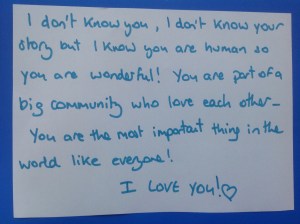 I don't know you, I don't know your
story but I know you are human so
you are wonderful! You are part of a
big community who love each other_
You are the most important thing in the
world like everyone!
I LOVE YOU!♡